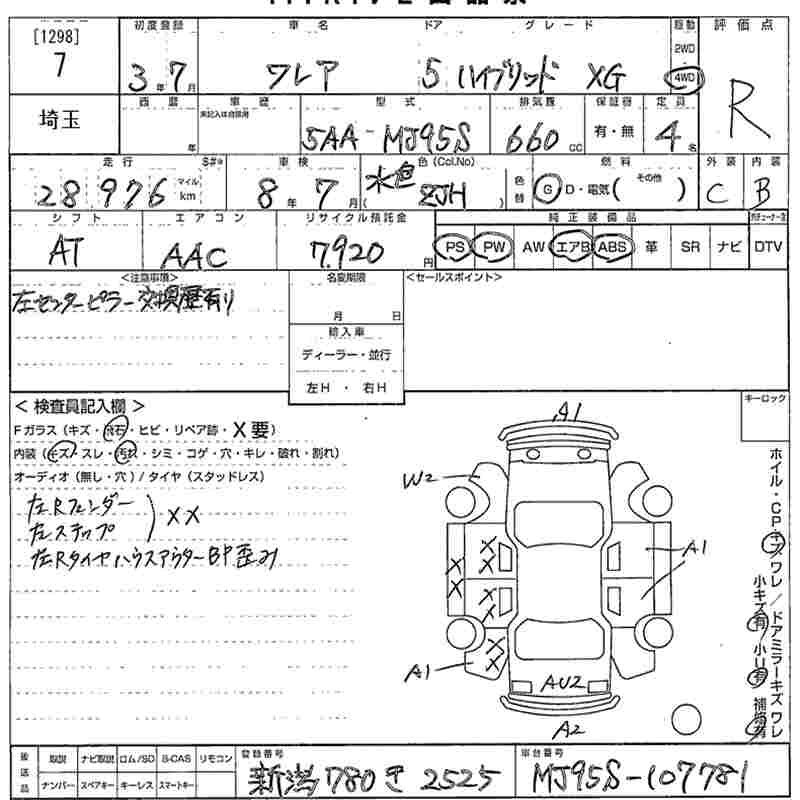 [1298]
7
埼玉
初度登録
3年7月
車名 ドア グレード
フレア 5 ハイブリッド XG
駆動
2WD
4WD
評価点
R
西暦
年
車歴
未記入は自家用
型式
5AA-MJ95S
排気量
660cc
保証書
有・無
定員
4名
走行 S#*
28,976 マイル km
車検
8年7月
色(Col.No)
水色 ZJH
色替
燃料
G D・電気( その他 )
外装
C
内装
B
シフト
AT
エアコン
AAC
リサイクル預託金
7.920円
純正装備品
PS PW AW エアB ABS 革 SR ナビ DTV
<注意事項>
左センターピラー交換歴有り
名変期限
月 日
輸入車
ディーラー・並行
左H・右H
<セールスポイント>
キーロック
<検査員記入欄>
Fガラス(キズ・飛石・ヒビ・リペア跡・X要)
内装(キズ・スレ・汚れ・シミ・コゲ・穴・キレ・破れ・割れ)
オーディオ(無し・穴)/タイヤ(スタッドレス)
左Rフェンダー
左ステップ
) XX
左Rタイヤハウスアウター BP歪み
A1
W2
XX
XX
XX
XX
A1
A1
AU2
A2
ホイル・CP・キズ ワレ/ドアミラーキズ ワレ
小キズ有 小U有 補修有
後送品
取説 ナビ取説 ロム/SD B-CAS リモコン
ナンバー スペアキー キーレス スマートキー
登録番号
新潟 780 き 2525
車台番号
MJ95S-107781